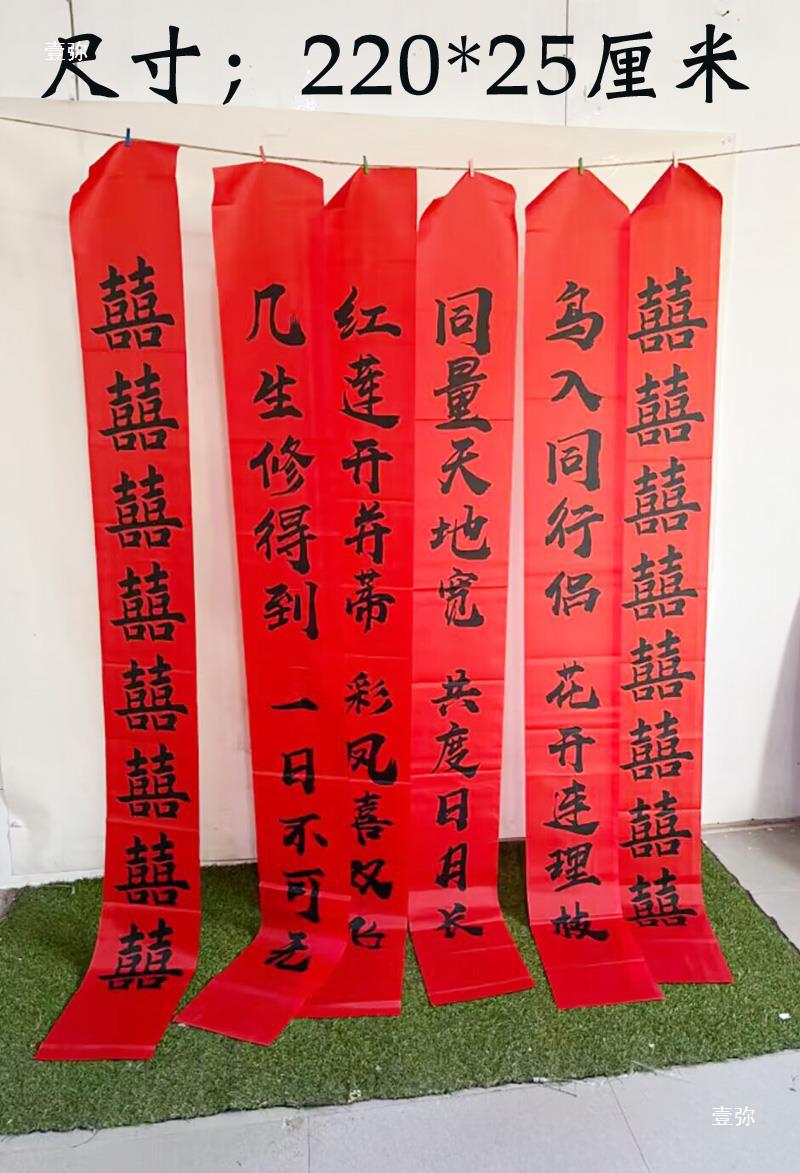 壹弥
尺寸；220*25厘米
囍囍囍囍囍囍囍囍
鸟入同行侣 花开连理枝
同量天地宽 共度日月长
红莲开并蒂 彩凤喜双飞
几生修得到 一日不可无
囍囍囍囍囍囍囍囍
壹弥